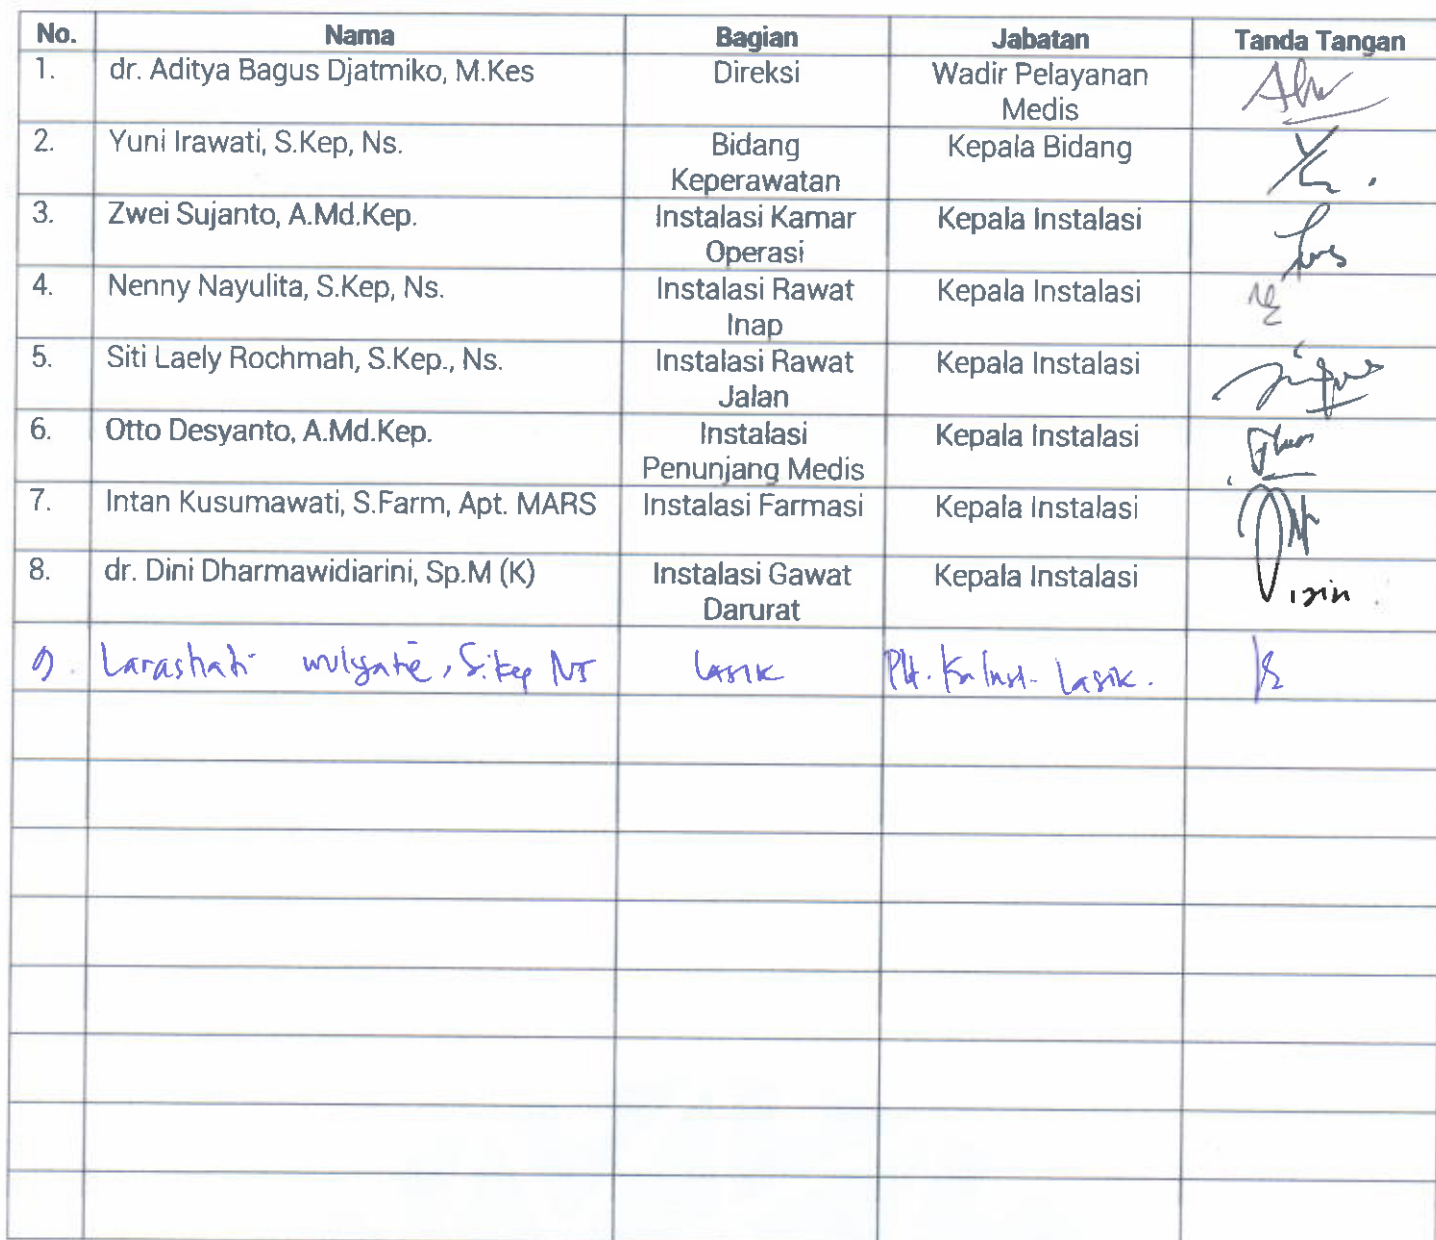 No. Nama Bagian Jabatan Tanda Tangan
1. dr. Aditya Bagus Djatmiko, M.Kes Direksi Wadir Pelayanan
Medis
2. Yuni Irawati, S.Kep, Ns. Bidang Kepala Bidang
Keperawatan
3. Zwei Sujanto, A.Md.Kep. Instalasi Kamar Kepala Instalasi
Operasi
4. Nenny Nayulita, S.Kep, Ns. Instalasi Rawat Kepala Instalasi
Inap
5. Siti Laely Rochmah, S.Kep., Ns. Instalasi Rawat Kepala Instalasi
Jalan
6. Otto Desyanto, A.Md.Kep. Instalasi Kepala Instalasi
Penunjang Medis
7. Intan Kusumawati, S.Farm, Apt. MARS Instalasi Farmasi Kepala Instalasi
8. dr. Dini Dharmawidiarini, Sp.M (K) Instalasi Gawat Kepala Instalasi izin
Darurat
9. Larashati S.Kep Ns Lasik Plt. Ka Inst. Lasik.